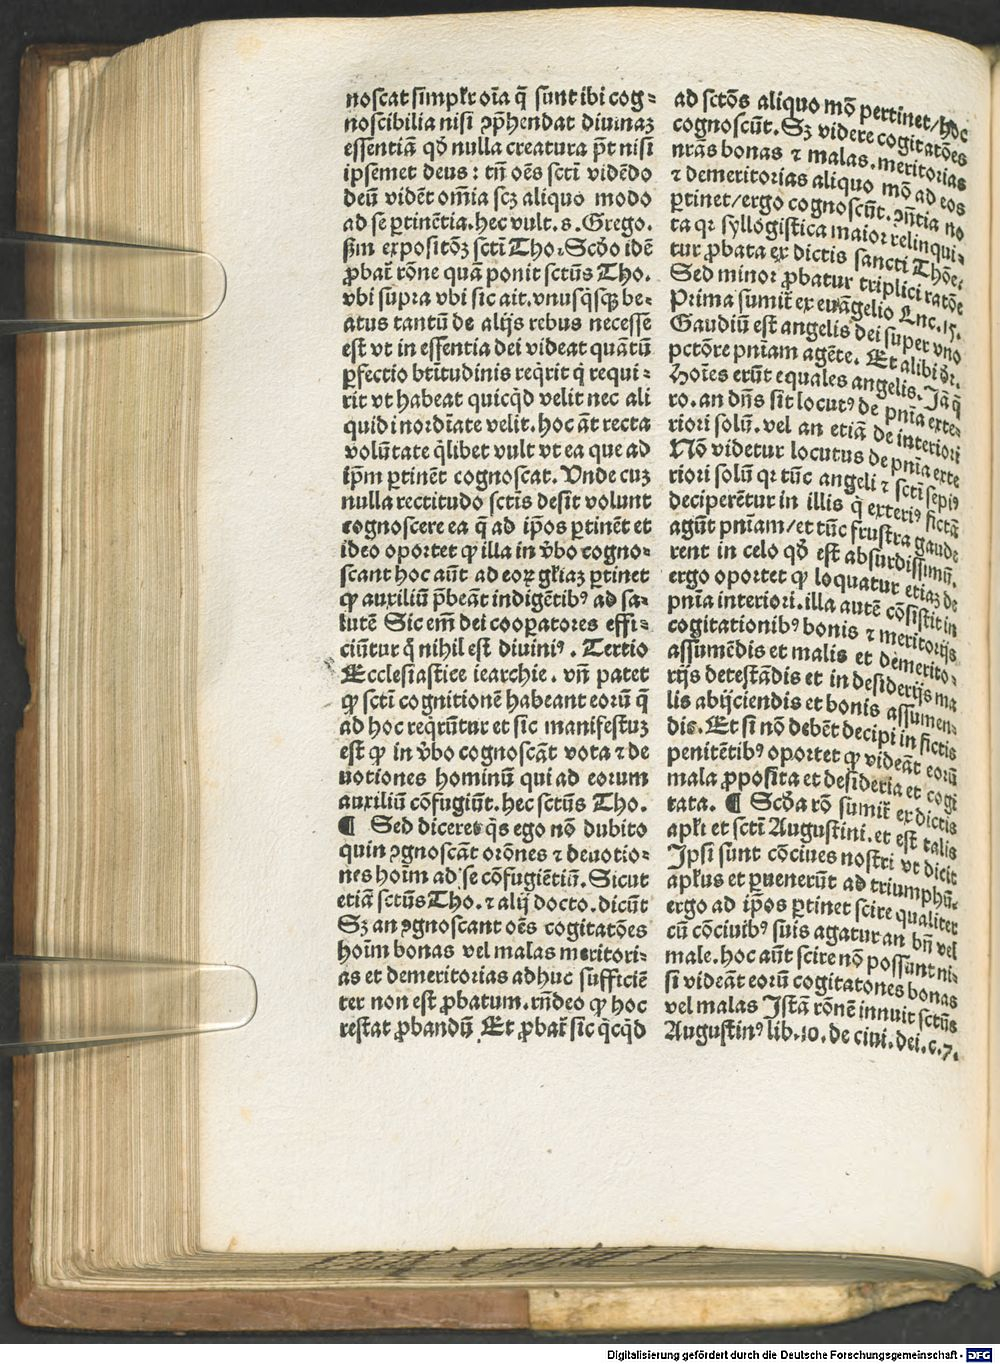 noscat simpl̄r oīa q̄ sunt ibi cog⸗
noscibilia nisi ꝯp̄hendat diuinaꝫ
essentiā qḋ nulla creatura pt̄ nisi
ipsemet deus : tn̄ oēs sctī vidēdo
deū vidēt om̄ia scꝫ aliquo modo
ad se ꝑtinētia. hec vult. s. Grego.
ßm expositōꝫ sctī Tho. Scḋo idē
ꝓbat̄ rōne quā ponit sctūs Tho.
vbi supra vbi sic ait. vnusq̄sqꝫ be⸗
atus tantū de alijs rebus necesse
est vt in essentia dei videat quātū
ꝑfectio btītudinis req̄rit q̄ requi⸗
rit vt habeat quicq̄d velit nec ali
quid inordīate velit. hoc āt recta
volūtate q̄libet vult vt ea que ad
ip̄m ꝑtinēt cognoscat. Unde cuꝫ
nulla rectitudo sctīs desit volunt
cognoscere ea q̄ ad ip̄os ꝑtinēt et
ideo oportet ꝙ illa in v̄bo cogno⸗
scant hoc aūt ad eoꝝ gl̄iaꝫ ꝑtinet
ꝙ auxiliū p̄beāt indigētibꝰ ad sa⸗
lutē Sic em̄ dei cooꝑatores effi⸗
ciūtur q̄ nihil est diuiniꝰ . Tertio
Ecclesiastice iearchie. vn̄ patet
ꝙ sctī cognitionē habeant eorū q̄
ad hoc req̄rūtur et sic manifestuꝫ
est ꝙ in v̄bo cognoscāt vota ⁊ de
uotiones hominū qui ad eorum
auxiliū cōfugiūt. hec sctūs Tho.
¶ Sed diceret q̄s ego nō dubito
quin ꝯgnoscāt orōnes ⁊ deuotio⸗
nes hoīm ad se cōfugiētiū. Sicut
etiā sctūs Tho. ⁊ alij docto. dicūt
Sꝫ an ꝯgnoscant oēs cogitatōes
hoīm bonas vel malas meritori⸗
as et demeritorias adhuc sufficiē
ter non est ꝓbatum. rn̄deo ꝙ hoc
restat ꝓbandū Et ꝓbat̄ sic q̄cq̄d
ad sctōs aliquo mō pertinet / hoc
cognoscūt. Sꝫ videre cogitatōes
nr̄as bonas ⁊ malas. meritorias
⁊ demeritorias aliquo mō ad eos
ꝑtinet / ergo cognoscūt. ꝯn̄tia no
ta qꝛ syllogistica maior relinqui⸗
tur ꝓbata ex dictis sancti Thōe.
Sed minor ꝓbatur triplici ratōe
Prima sumit̄ ex euāgelio Luc. 15.
Gaudiū est angelis dei super vno
pctōre pn̄iam agēte. Et alibi dr̄.
Hoīes erūt equales angelis. Jā q̄
ro. an dn̄s sit locutꝰ de pn̄ia exte⸗
riori solū. vel an etiā de interiori
Nō videtur locutus de pn̄ia exte
riori solū qꝛ tūc angeli ⁊ sctī sepiꝰ
deciperētur in illis q̄ exteriꝰ fictā
agūt pn̄iam / et tūc frustra gaude
rent in celo qḋ est absurdissimū.
ergo oportet ꝙ loquatur etiaꝫ de
pn̄ia interiori. illa autē cōsistit in
cogitationibꝰ bonis ⁊ meritorijs
assumēdis et malis et demerito⸗
rijs detestādis et in desiderijs ma
lis abijciendis et bonis assumen⸗
dis. Et si nō debēt decipi in fictis
penitētibꝰ oportet ꝙ videāt eorū
mala ꝓposita et desideria et cogi
tata. ¶ Scḋa rō sumit̄ ex dictis
apl̄i et sctī Augustini. et est talis
Ipsi sunt cōciues nostri vt dicit
apl̄us et ꝑuenerūt ad triumphū.
ergo ad ip̄os ꝑtinet scire qualiter
cū cōciuibꝰ suis agatur an bn̄ vel
male. hoc aūt scire nō possunt ni⸗
si videāt eorū cogitatones bonas
vel malas Istā rōnē innuit sctūs
Augustinꝰ lib. 10. de ciui. dei. c. 7.
Digitalisierung gefördert durch die Deutsche Forschungsgemeinschaft - DFG